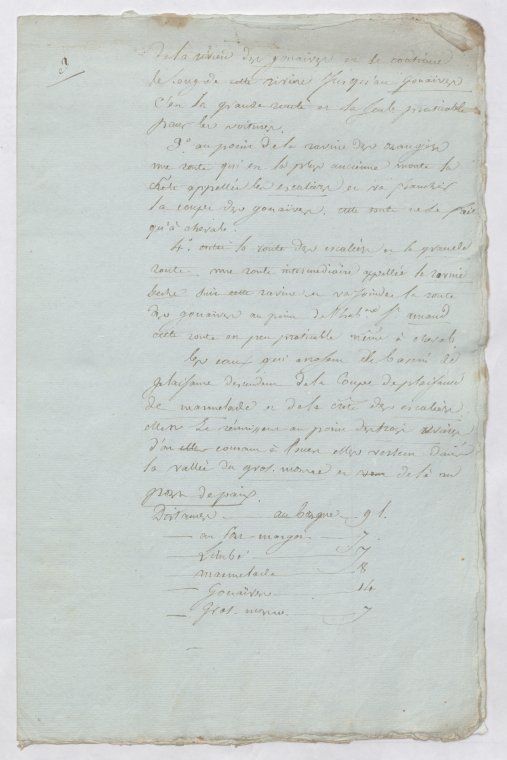 3
de la rivière des gonaives et le continue
le long de cette rivière jusqu'au Gonaives
c'est la grande route et la seule praticable
pour les voitures.
3.° au point de la ravine des
une route qui est la plus ancienne monte la
crête appellée les escaliers et va
la coupe des gonaives. cette route ne se fait
qu'à cheval.
4.° entre la route des escaliers et la grande
route une route intermédiaire appellée la ravine
suit cette ravine et va joindre la route
des gonaives au point de l'hab.on St.
cette route est peu praticable même à cheval.
les eaux qui arrosent le bassin de
plaisance descendent de la Coupe de plaisance
de marmelade et de la crête des escaliers
elles se réunissent au point des trois rivières
d'où courant à l'ouest elles versent dans
la vallée du gros-morne et de là au
port de paix.
Distances — au borgne — 9 l.
— au fort-margot — 7
— Limbé — 7
— marmelade — 8
— Gonaives — 14
— Gros-morne — 7